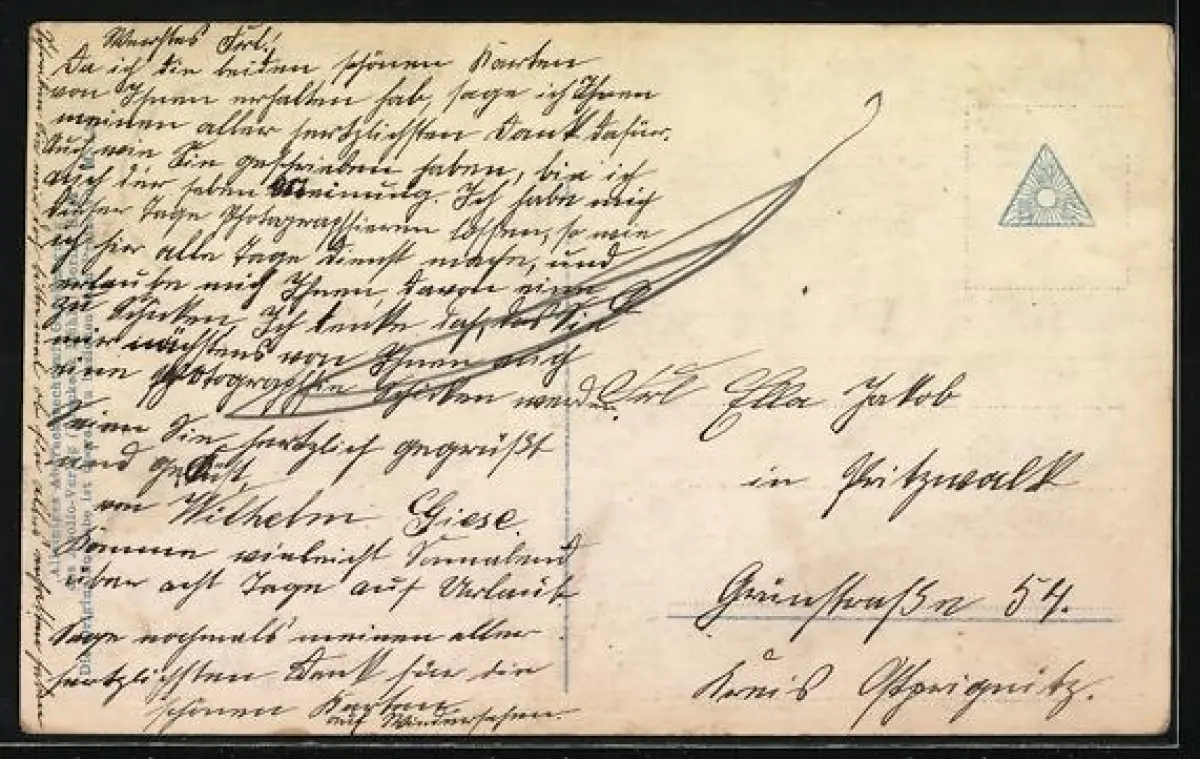 Wertes Frl.!
Da ich die beiden schönen Karten
von Ihnen erhalten hab, sage ich Ihnen
meinen aller hertzlichsten Dank dafür.
Auch wie Sie geschrieben haben, bin ich
auch der selben Meinung. Ich habe mich
dieser Tage Photographieren lassen, so wie
ich hier alle Tage Dienst mache, und
erlaube mich Ihnen, davon eine
zu Schicken. Ich denke daß, das Sie
mir nächstens von Ihnen auch
eine Photographie schicken werden.
Seien Sie hertzlich gegrüßt
und geküst,
von Wilhelm Giese.
Komme vieleicht Sonnabend
über acht Tage auf Urlaub.
Sage nochmals meinen aller
hertzlichsten Dank für die
schönen Karten
auf Wiedersehen.
Frl Ella Jakob
in Pritzwalk
Grünstraße 54.
Kreis Ostprignitz.